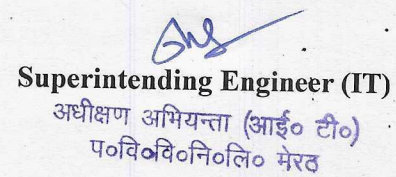 Superintending Engineer (IT)
अधीक्षण अभियन्ता (आई० टी०)
प०वि०वि०नि०लि० मेरठ